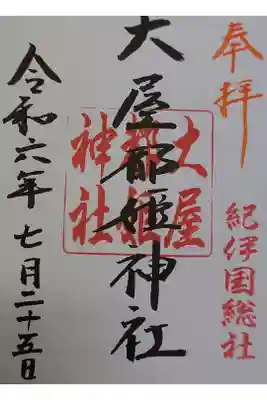 奉拝
紀伊国総社
大屋都姫神社
大屋都姫神社
令和六年七月二十五日